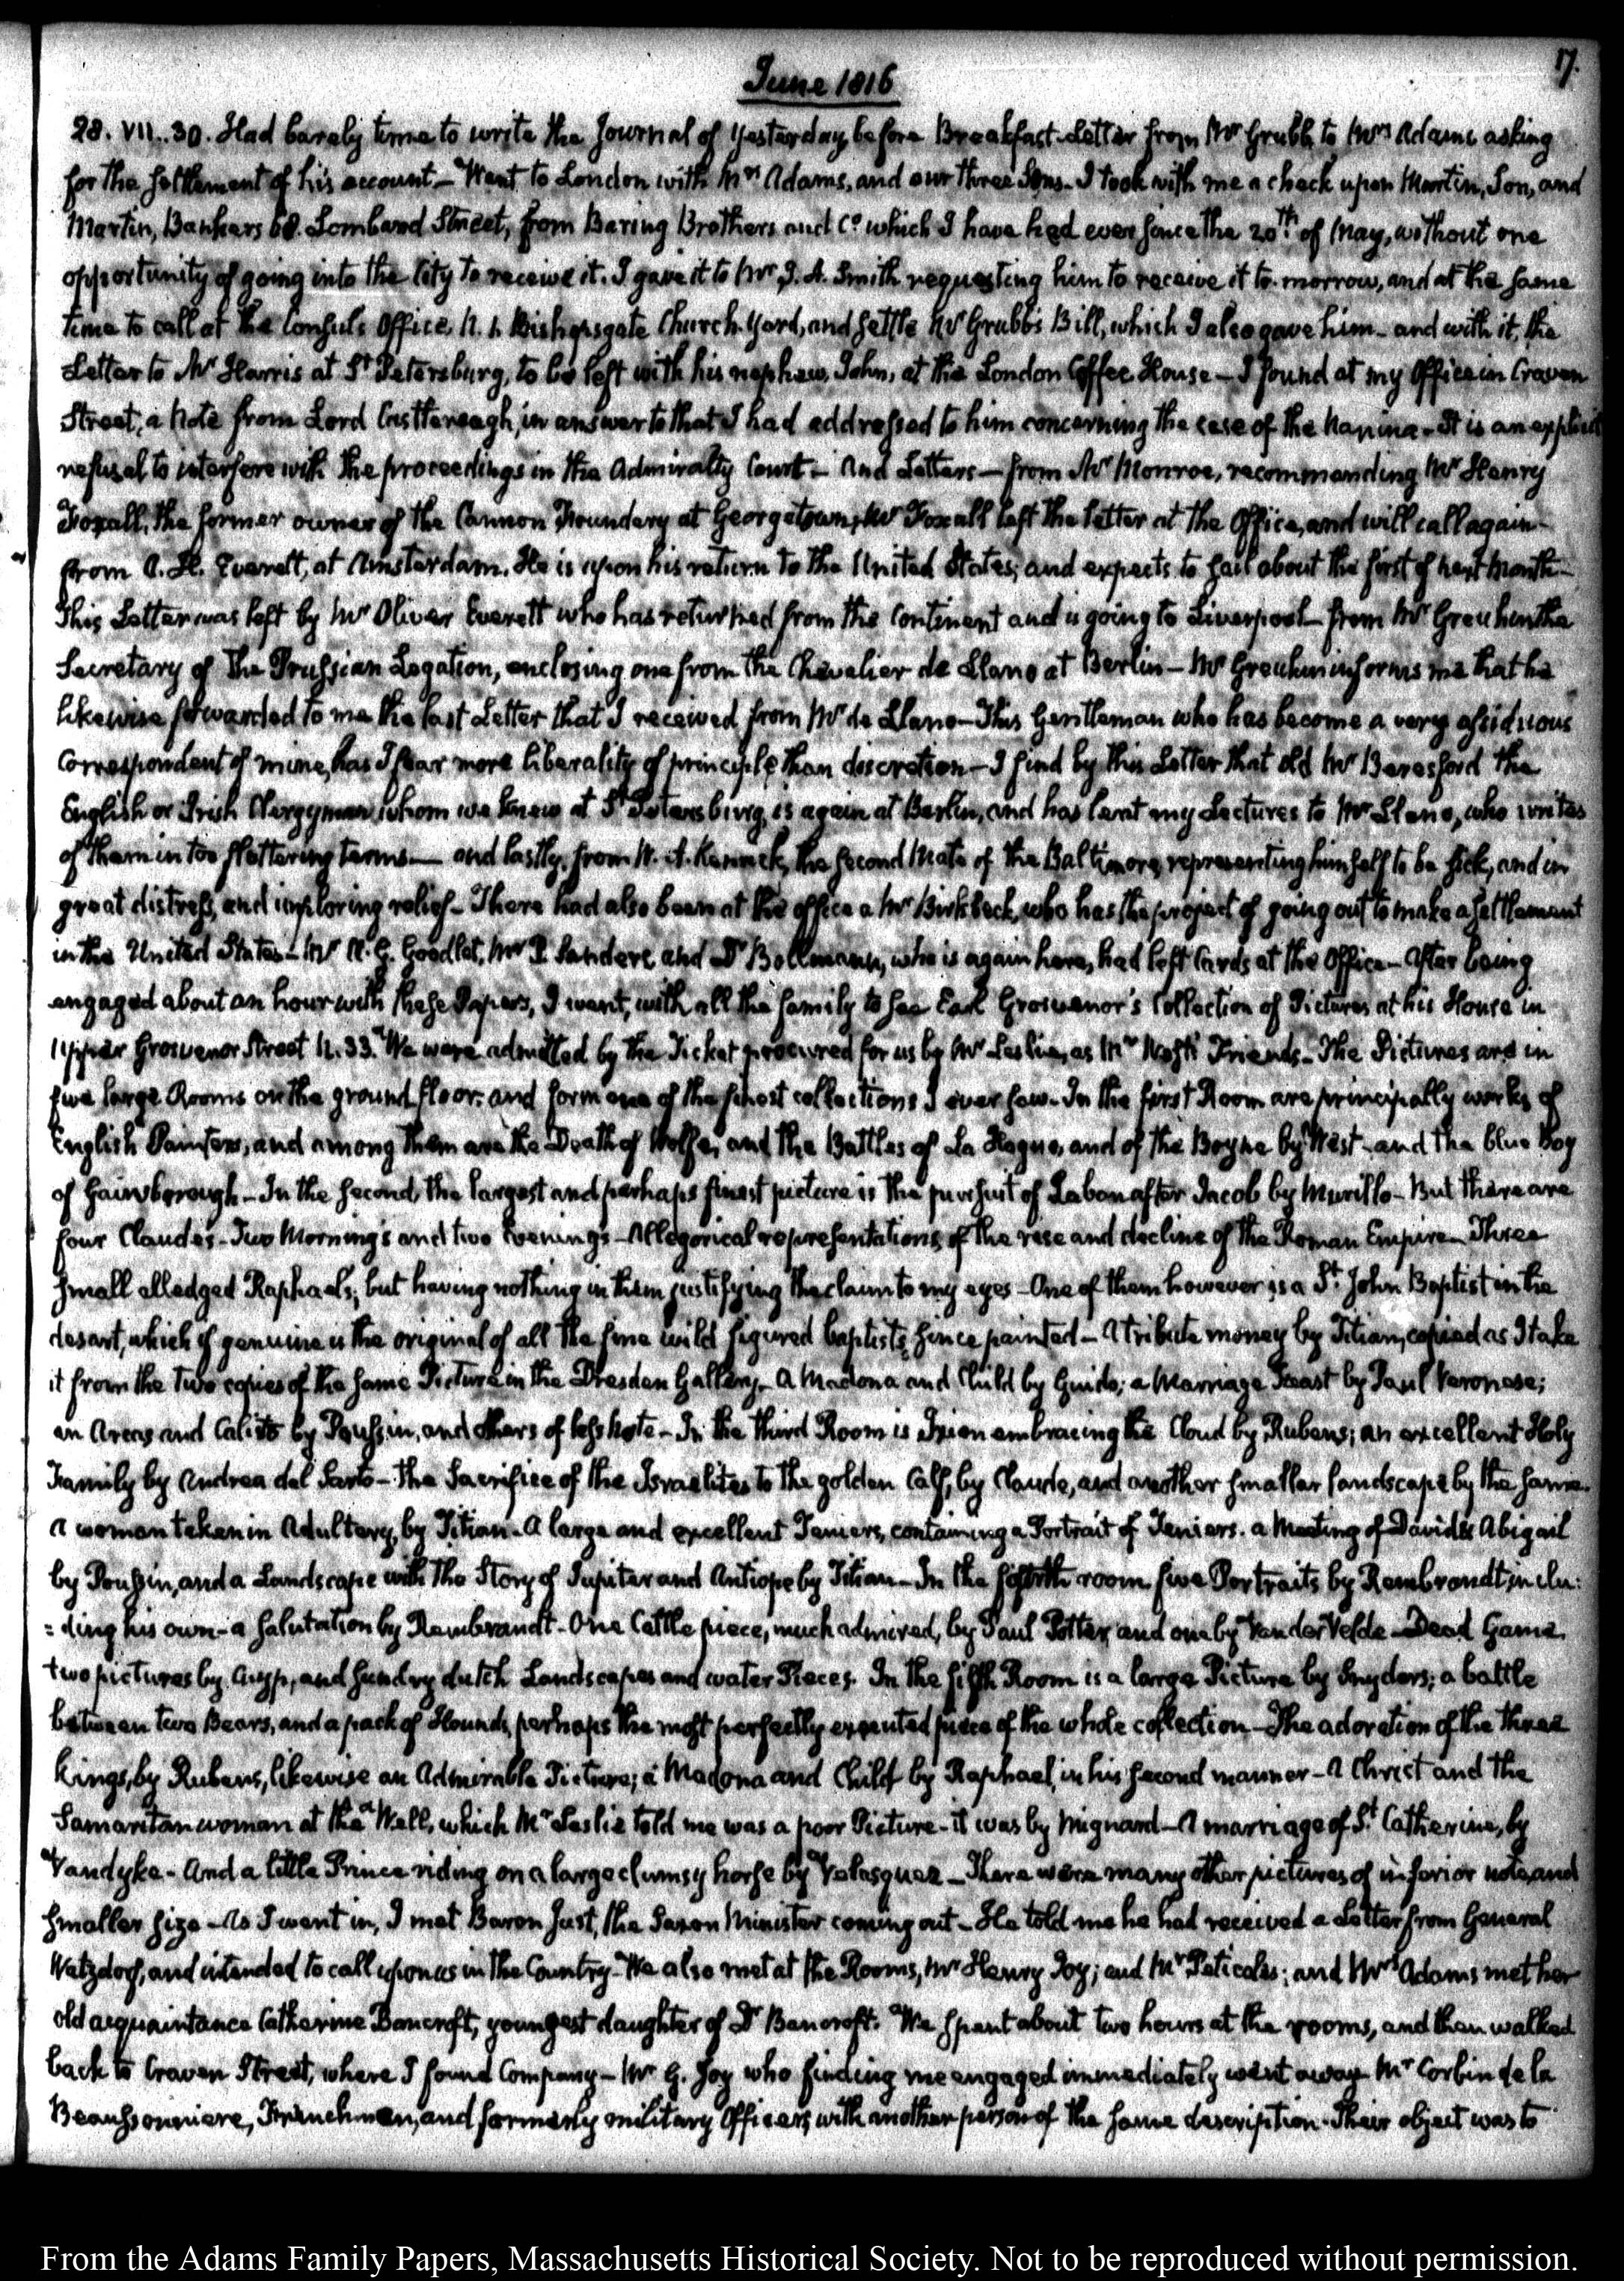 17.
June 1816
28. VII..30. Had barely time to write the Journal of yesterday before Breakfast. Letter from Mr Grubb to Mrs Adams asking
for the settlement of his account — Went to London with Mrs Adams, and our three Sons. I took with me a check upon Martin, Son, and
Martin, Bankers 68. Lombard Street, from Baring Brothers and Co. which I have had ever since the 20th of May, without one
opportunity of going into the City to receive it. I gave it to Mr J. A. Smith requesting him to receive it to-morrow, and at the same
time to call at the Consul's Office N. 1. Bishopsgate Church-Yard, and settle Mr Grubb's Bill, which I also gave him — and with it, the
Letter to Mr Harris at St Petersburg, to be left with his nephew, John, at the London Coffee House — I found at my Office in Craven
Street, a Note from Lord Castlereagh, in answer to that I had addressed to him concerning the case of the Nanina — It is an explicit
refusal to interfere with the proceedings in the Admiralty Court — And Letters — from Mr Monroe, recommending Mr Henry
Foxall, the former owner of the Cannon Foundery at Georgetown; Mr Foxall left the letter at the Office, and will call again —
from A. H. Everett, at Amsterdam. He is upon his return to the United States, and expects to sail about the first of next Month —
This Letter was left by Mr Oliver Everett who has returned from the Continent and is going to Liverpool — from Mr Greuhm the
Secretary of the Prussian Legation, enclosing one from the Chevalier de Llano at Berlin — Mr Greuhm informs me that he
likewise forwarded to me the last Letter that I received from Mr de Llano — This Gentleman who has become a very assiduous
Correspondent of mine, has I fear more liberality of principle than discretion — I find by this Letter that old Mr Beresford the
English or Irish Clergyman whom we knew at St Petersburg, is again at Berlin, and has lent my Lectures to Mr Llano, who writes
of them in too flattering terms — and lastly, from W. A. the second Mate of the Baltimore, representing himself to be sick, and in
great distress, and imploring relief — There had also been at the office a Mr Birkbeck, who has the project of going out to make a settlement
in the United States — Mr A. G. Goodlet, Mr P. Sanders, and Dr Bollmann, who is again here, had left Cards at the Office — After being
engaged about an hour with these Papers, I went, with all the family to see Earl Grosvenor's Collection of Pictures at his House in
Upper Grosvenor Street N. 33. We were admitted by the Ticket procured for us by Mr Leslie, as Mr West's Friends — The Pictures are in
five large Rooms on the ground floor; and form one of the finest collections I ever saw — In the first Room are principally works of
English Painters, and among them are the Death of Wolfe, and the Battles of La Hogue, and of the Boyne by West — and the blue Boy
of Gainsborough — In the second, the largest and perhaps finest picture is the pursuit of Laban after Jacob by Murillo — But there are
four Claudes — Two Mornings and two Evenings — Allegorical representations of the rise and decline of the Roman Empire — Three
small alledged Raphaels; but having nothing in them justifying the claim to my eyes — One of them however is a St. John Baptist in the
desart, which if genuine is the original of all the fine wild figured baptists, since painted — A tribute money by Titian, copied as I take
it from the two copies of the same Picture in the Dresden Gallery — A Madona and Child by Guido; a Marriage Feast by Paul Veronese;
an Arcas and Calisto by Poussin, and others of less note — In the third Room is Ixion embracing the Cloud by Rubens; an excellent Holy
Family by Andrea del Sarto — the Sacrifice of the Israelites to the golden Calf, by Claude, and another smaller landscape by the same.
A woman taken in Adultery, by Titian — A large and excellent Teniers, containing a Portrait of Teniers. a Meeting of David & Abigail
by Poussin, and a Landscape with the Story of Jupiter and Antiope by Titian — In the fourth room five Portraits by Rembrandt, inclu:
:ding his own — a salutation by Rembrandt — One Cattle piece, much admired, by Paul Potter, and one by Van der Velde — Dead Game,
two pictures by Cuyp, and sundry dutch Landscapes and water Pieces. In the fifth Room is a large Picture by Snyders; a battle
between two Bears, and a pack of Hounds, perhaps the most perfectly executed piece of the whole collection — The adoration of the three
kings, by Rubens, likewise an Admirable Picture; a Madona and Child by Raphael, in his second manner — A Christ and the
Samaritan woman at the Well, which Mr Leslie told me was a poor Picture — it was by Mignard — A marriage of St. Catherine, by
Vandyke — And a little Prince riding on a large clumsy horse by Velasquez — There were many other pictures of inferior note, and
smaller size — As I went in, I met Baron Just, the Saxon Minister coming out — He told me he had received a Letter from General
Watzdorf, and intended to call upon us in the Country — We also met at the Rooms, Mr Henry Joy; and Mr Peticolas; and Mrs Adams met her
old acquaintance Catherine Bancroft, youngest daughter of Dr Bancroft. We spent about two hours at the rooms, and then walked
back to Craven Street, where I found Company — Mr G. Joy who finding me engaged immediately went away — Mr Corbin de la
Beaussonniere, Frenchmen, and formerly military Officers, with another person of the same description. Their object was to
From the Adams Family Papers, Massachusetts Historical Society. Not to be reproduced without permission.